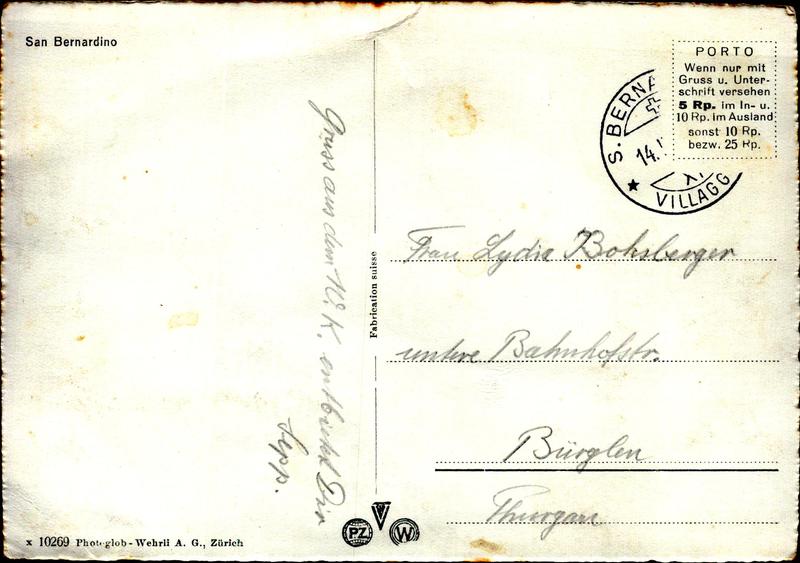 San Bernardino
PORTO
Wenn nur mit
Gruss u. Unter-
schrift versehen
5 Rp. im In- u.
10 Rp. im Ausland
sonst 10 Rp.
bezw. 25 Rp.
S. BERNA
14.
XI
VILLAGG
Gruss aus dem W.K. entbietet Dir
Sepp.
Fabrication suisse
Frau Lydia Bohsberger
untere Bahnhofstr.
Bürglen
Thurgau
PZ
W
x 10269 Photoglob-Wehrli A. G., Zürich